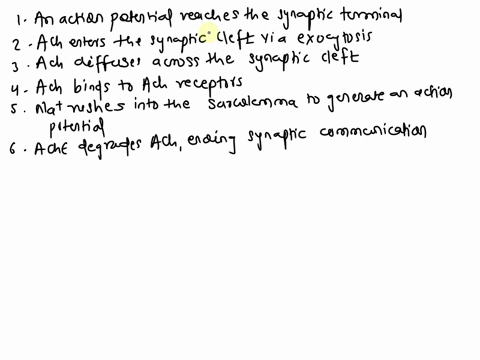 1. An action potential reaches the synaptic terminal
2. Ach enters the synaptic cleft via exocytosis
3. Ach diffuses across the synaptic cleft
4. Ach binds to Ach receptors
5. Na+ rushes into the Sarcolemma to generate an action
potential
6. AchE degrades Ach, ending synaptic communication